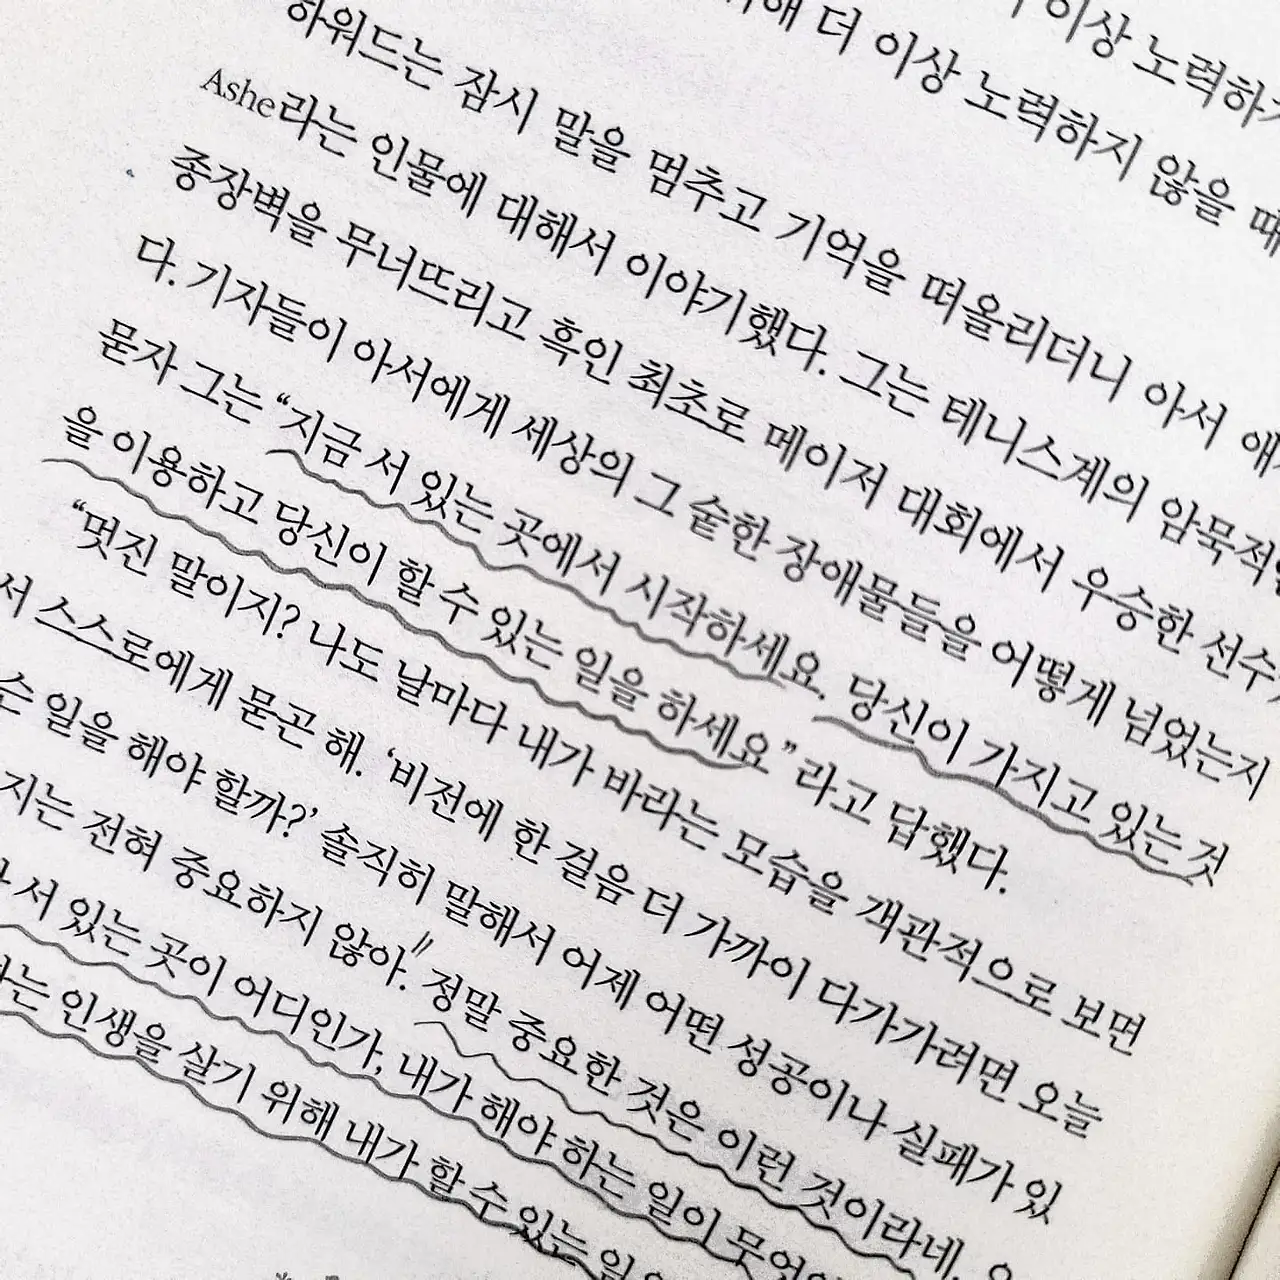 이상 노력하
해 더 이상 노력하지 않을 때
하워드는 잠시 말을 멈추고 기억을 떠올리더니 아서 애
Ashe라는 인물에 대해서 이야기했다. 그는 테니스계의 암묵적
종장벽을 무너뜨리고 흑인 최초로 메이저 대회에서 우승한 선수
다. 기자들이 아서에게 세상의 그 숱한 장애물들을 어떻게 넘었는지
묻자 그는 “지금 서 있는 곳에서 시작하세요. 당신이 가지고 있는 것
을 이용하고 당신이 할 수 있는 일을 하세요”라고 답했다.
“멋진 말이지? 나도 날마다 내가 바라는 모습을 객관적으로 보면
서 스스로에게 묻곤 해. ‘비전에 한 걸음 더 가까이 다가가려면 오늘
슨 일을 해야 할까?’ 솔직히 말해서 어제 어떤 성공이나 실패가 있
지는 전혀 중요하지 않아. 정말 중요한 것은 이런 것이라네.
서 있는 곳이 어디인가, 내가 해야 하는 일이 무엇
는 인생을 살기 위해 내가 할 수 있는 일